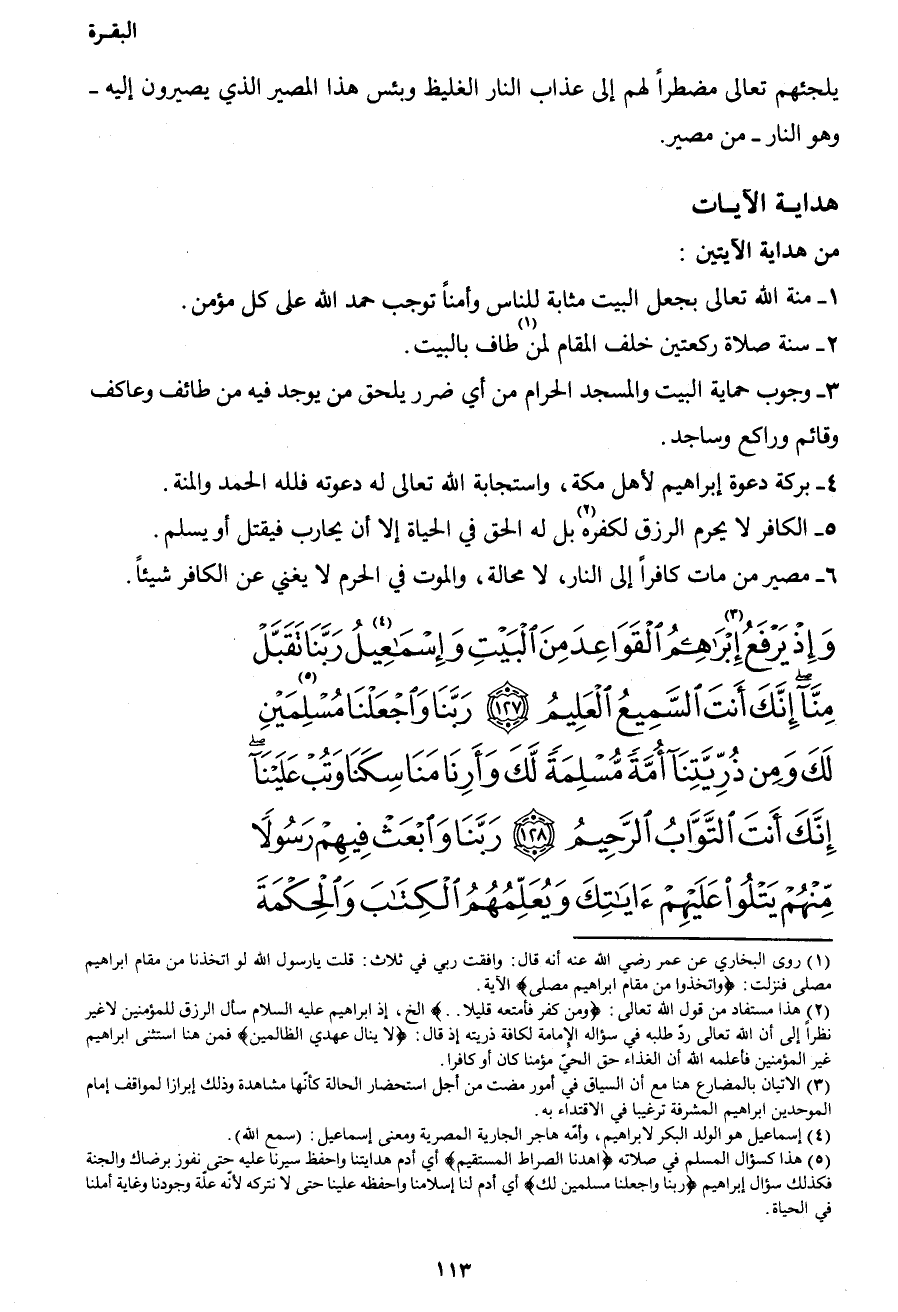 البقـرة
يلجئهم تعالى مضطراً لهم إلى عذاب النار الغليظ وبئس هذا المصير الذي يصيرون إليه ـ
وهو النار ـ من مصير.
هدايـة الآيـات
من هداية الآيتين :
١ـ منة الله تعالى بجعل البيت مثابة للناس وأمناً توجب حمد الله على كل مؤمن .
٢ـ سنة صلاة ركعتين خلف المقام لمن(١) طاف بالبيت .
٣ـ وجوب حماية البيت والمسجد الحرام من أي ضرر يلحق من يوجد فيه من طائف وعاكف
وقائم وراكع وساجد .
٤ـ بركة دعوة إبراهيم لأهل مكة، واستجابة الله تعالى له دعوته فلله الحمد والمنة .
٥ـ الكافر لا يحرم الرزق لكفره(٢) بل له الحق في الحياة إلا أن يحارب فيقتل أو يسلم .
٦ـ مصير من مات كافراً إلى النار، لا محالة، والموت في الحرم لا يغني عن الكافر شيئاً .
وَإِذْ يَرْفَعُ(٣) إِبْرَٰهِـۧمُ ٱلْقَوَاعِدَ مِنَ ٱلْبَيْتِ وَإِسْمَٰعِيلُ(٤) رَبَّنَا تَقَبَّلْ
مِنَّآ ۖ إِنَّكَ أَنتَ ٱلسَّمِيعُ ٱلْعَلِيمُ ﴿١٢٧﴾ رَبَّنَا وَٱجْعَلْنَا(٥) مُسْلِمَيْنِ
لَكَ وَمِن ذُرِّيَّتِنَآ أُمَّةً مُّسْلِمَةً لَّكَ وَأَرِنَا مَنَاسِكَنَا وَتُبْ عَلَيْنَآ ۖ
إِنَّكَ أَنتَ ٱلتَّوَّابُ ٱلرَّحِيمُ ﴿١٢٨﴾ رَبَّنَا وَٱبْعَثْ فِيهِمْ رَسُولًا
مِّنْهُمْ يَتْلُوا۟ عَلَيْهِمْ ءَايَٰتِكَ وَيُعَلِّمُهُمُ ٱلْكِتَٰبَ وَٱلْحِكْمَةَ
(١) روى البخاري عن عمر رضي الله عنه أنه قال: وافقت ربي في ثلاث: قلت يارسول الله لو اتخذنا من مقام ابراهيم
مصلى فنزلت: ﴿واتخذوا من مقام ابراهيم مصلى﴾ الآية.
(٢) هذا مستفاد من قول الله تعالى: ﴿ومن كفر فأمتعه قليلا. .﴾ الخ، إذ ابراهيم عليه السلام سأل الرزق للمؤمنين لاغير
نظراً إلى أن الله تعالى ردّ طلبه في سؤاله الإمامة لكافة ذريته إذ قال: ﴿لا ينال عهدي الظالمين﴾ فمن هنا استثنى ابراهيم
غير المؤمنين فأعلمه الله أن الغذاء حق الحيّ مؤمنا كان أو كافرا.
(٣) الاتيان بالمضارع هنا مع أن السياق في أمور مضت من أجل استحضار الحالة كأنّها مشاهدة وذلك إبرازا لمواقف إمام
الموحدين ابراهيم المشرفة ترغيبا في الاقتداء به .
(٤) إسماعيل هو الولد البكر لابراهيم، وأمّه هاجر الجارية المصرية ومعنى إسماعيل: (سمع الله).
(٥) هذا كسؤال المسلم في صلاته ﴿اهدنا الصراط المستقيم﴾ أي أدم هدايتنا واحفظ سيرنا عليه حتى نفوز برضاك والجنة
فكذلك سؤال إبراهيم ﴿ربنا واجعلنا مسلمين لك﴾ أي أدم لنا إسلامنا واحفظه علينا حتى لا نتركه لأنّه علّة وجودنا وغاية أملنا
في الحياة .
١١٣